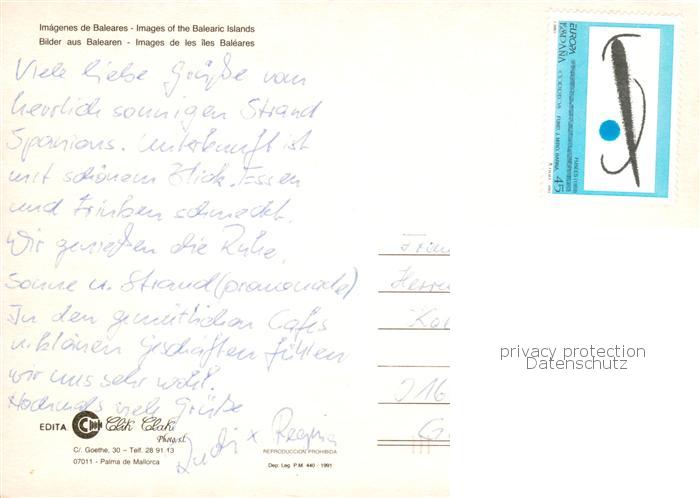 Imágenes de Baleares - Images of the Balearic Islands
Bilder aus Balearen - Images de les îles Baléares
Viele liebe Grüße vom
herrlich sonnigen Strand
Spaniens. Unterkunft ist
mit schönem Blick. Essen
und Trinken schmeckt.
Wir genießen die Ruhe,
Sonne u. Strand(promenade)
In den gemütlichen Cafes
u. kleinen Geschäften fühlen
wir uns sehr wohl.
Nochmals viele Grüße
Rudi x Regina
EDITA
Clik Clak
Photo, s.l.
C/. Goethe, 30 – Telf. 28 91 13
07011 - Palma de Mallorca
REPRODUCCION PROHIBIDA
Dep. Leg. P.M. 440 - 1991
EUROPA
ESPAÑA
45
Herrn
privacy protection
Datenschutz